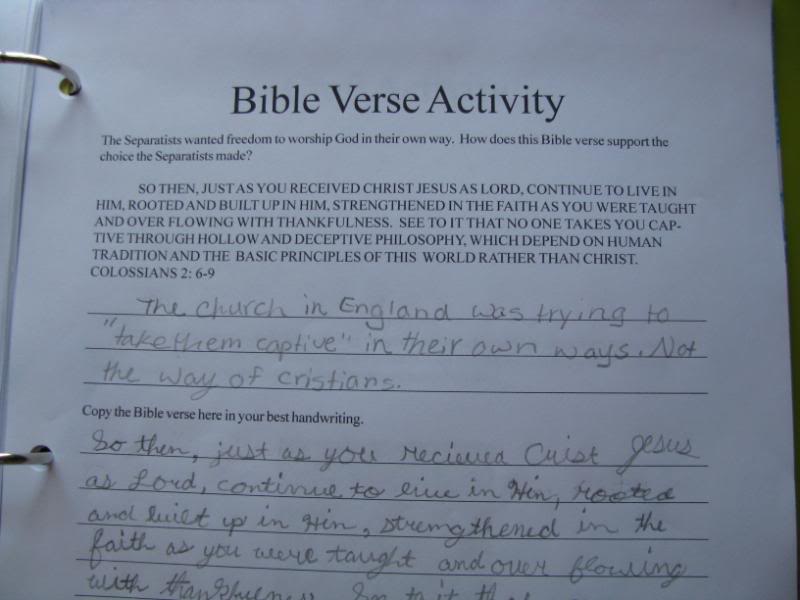 Bible Verse Activity
The Separatists wanted freedom to worship God in their own way. How does this Bible verse support the
choice the Separatists made?
SO THEN, JUST AS YOU RECEIVED CHRIST JESUS AS LORD, CONTINUE TO LIVE IN
HIM, ROOTED AND BUILT UP IN HIM, STRENGTHENED IN THE FAITH AS YOU WERE TAUGHT
AND OVER FLOWING WITH THANKFULNESS. SEE TO IT THAT NO ONE TAKES YOU CAP-
TIVE THROUGH HOLLOW AND DECEPTIVE PHILOSOPHY, WHICH DEPEND ON HUMAN
TRADITION AND THE BASIC PRINCIPLES OF THIS WORLD RATHER THAN CHRIST.
COLOSSIANS 2: 6-9
The church in England was trying to
"take them captive" in their own ways. Not
the way of cristians.
Copy the Bible verse here in your best handwriting.
So then, just as you recieved Crist Jesus
as Lord, continue to live in Him, rooted
and built up in Him, strengthened in the
faith as you were taught and over flowing
with